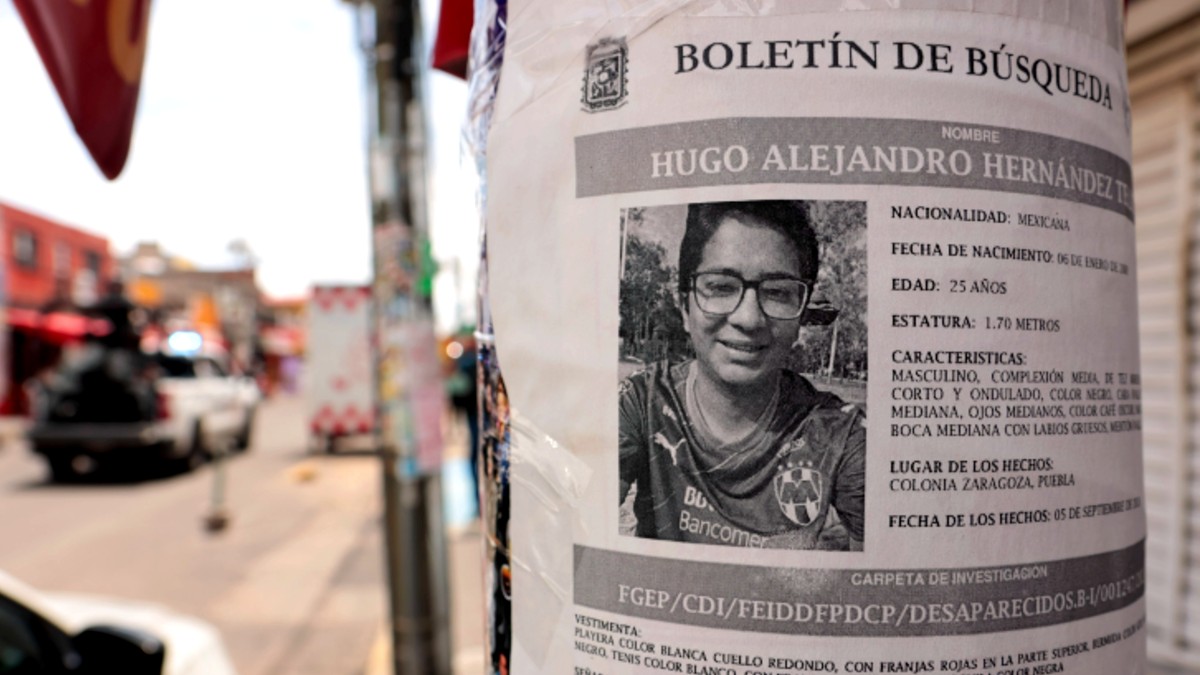 BOLETÍN DE BÚSQUEDA
NOMBRE
HUGO ALEJANDRO HERNÁNDEZ
NACIONALIDAD: MEXICANA
FECHA DE NACIMIENTO: 06 DE ENERO DE
EDAD: 25 AÑOS
ESTATURA: 1.70 METROS
CARACTERISTICAS:
MASCULINO, COMPLEXIÓN MEDIA, DE TEZ
CORTO Y ONDULADO, COLOR NEGRO, CARA
MEDIANA, OJOS MEDIANOS, COLOR CAFÉ
BOCA MEDIANA CON LABIOS GRUESOS,
LUGAR DE LOS HECHOS:
COLONIA ZARAGOZA, PUEBLA
FECHA DE LOS HECHOS: 05 DE SEPTIEMBRE DE
Bancomer
CARPETA DE INVESTIGACIÓN
FGEP/CDI/FEIDDFPDCP/DESAPARECIDOS.B-I/001247
VESTIMENTA:
PLAYERA COLOR BLANCA CUELLO REDONDO, CON FRANJAS ROJAS EN LA PARTE SUPERIOR, BERMUDA COLOR
NEGRO, TENIS COLOR BLANCO, COLOR NEGRA